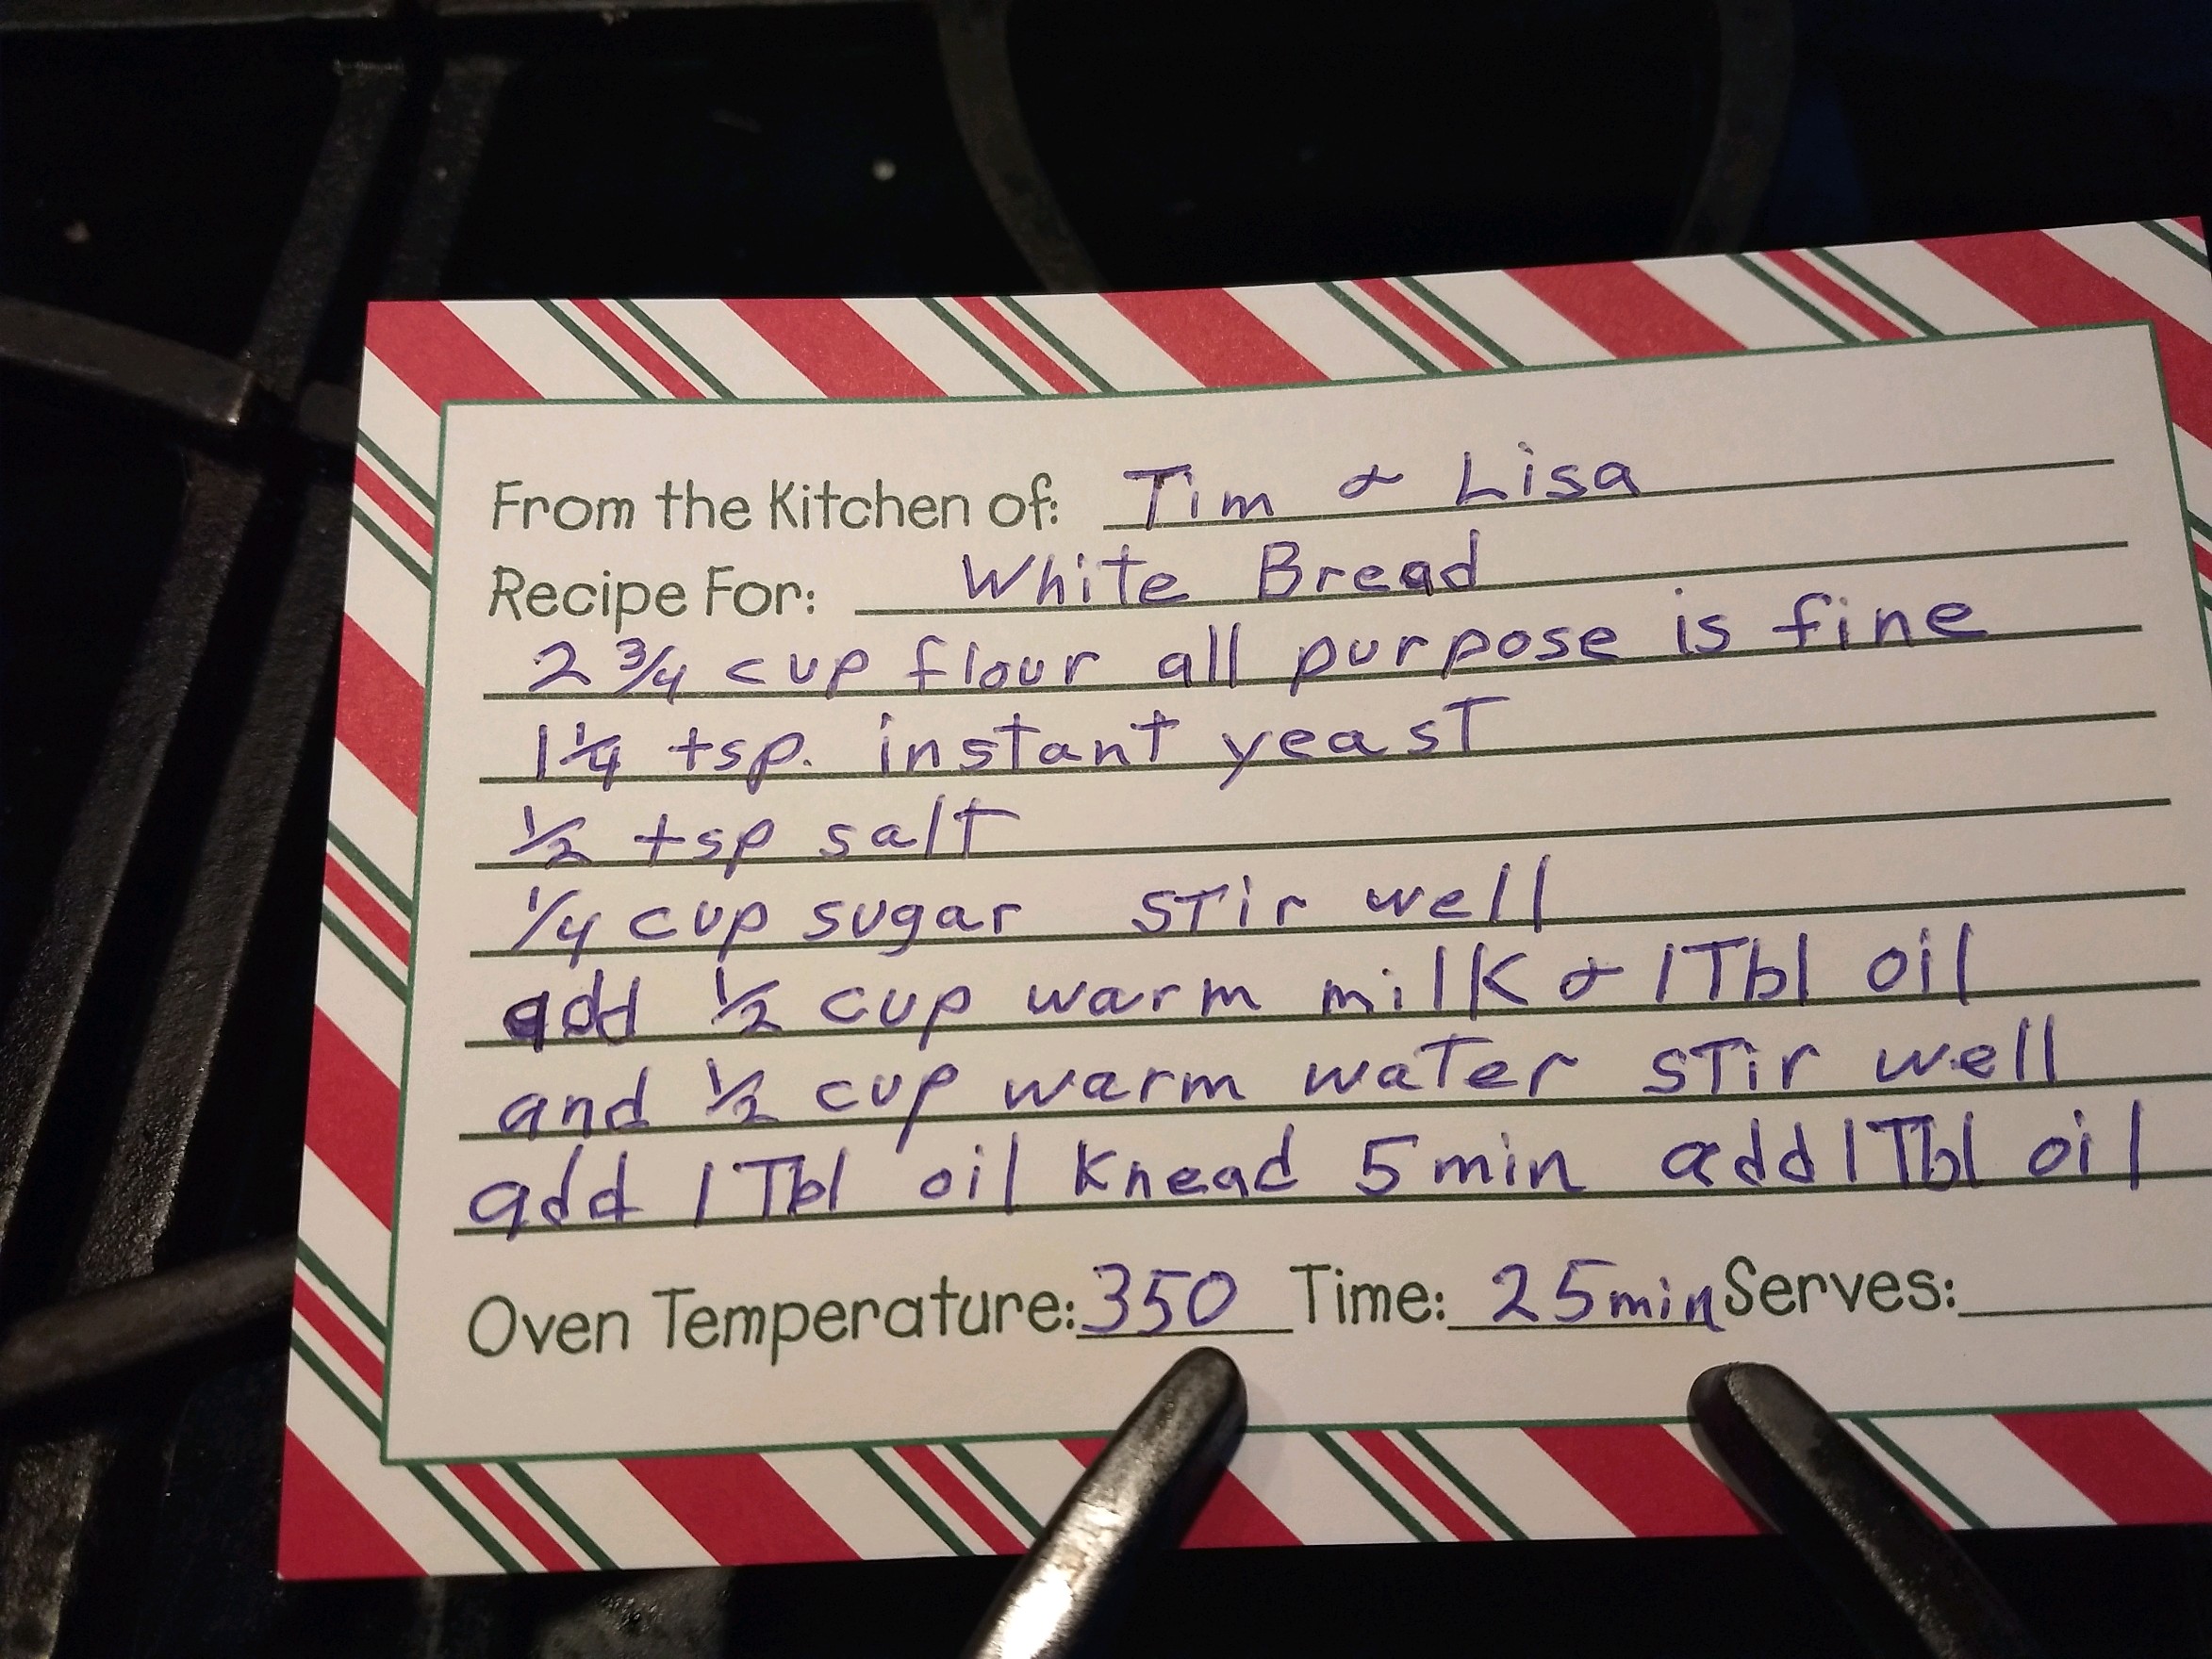 From the Kitchen of: Tim & Lisa
Recipe For: White Bread
2 3/4 cup flour all purpose is fine
1 1/4 tsp. instant yeast
1/2 tsp salt
1/4 cup sugar stir well
add 1/2 cup warm milk & 1 Tbl oil
and 1/2 cup warm water stir well
add 1 Tbl oil knead 5 min add 1 Tbl oil
Oven Temperature: 350 Time: 25 min Serves: